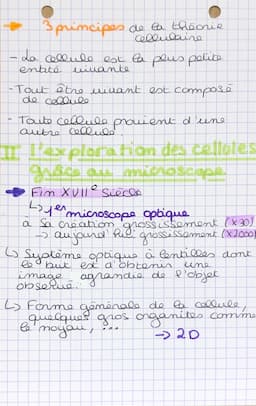 → 3 principes de la théorie
cellulaire
- La cellule est la plus petite
entité vivante
- Tout être vivant est composé
de cellule
- Toute cellule provient d'une
autre cellule.
II L'exploration des cellules
grâce au microscope
→ Fin XVIIe Siècle
↳ 1er microscope optique
à sa création grossissement (x30)
→ aujourd'hui grossissement (x2000)
↳ Système optique à lentilles dont
le but est d'obtenir une
image agrandie de l'objet
observé.
↳ Forme générale de la cellule,
quelques gros organites comme
le noyau, ...
→ 2D